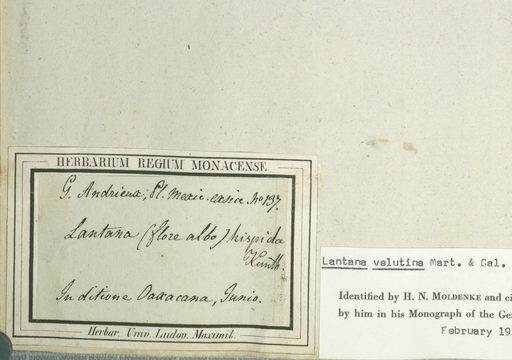 HERBARIUM REGIUM MONACENSE
G. Andrieux, Pl. Mexic. exsicc. No 137.
Lantana (flore albo) hispida
Kunth.
In ditione Oaxacana, Junio.
Herbar. Univ. Ludov. Maximil.
Lantana velutina Mart. & Gal.
Identified by H. N. MOLDENKE and ci
by him in his Monograph of the Ge
February 19